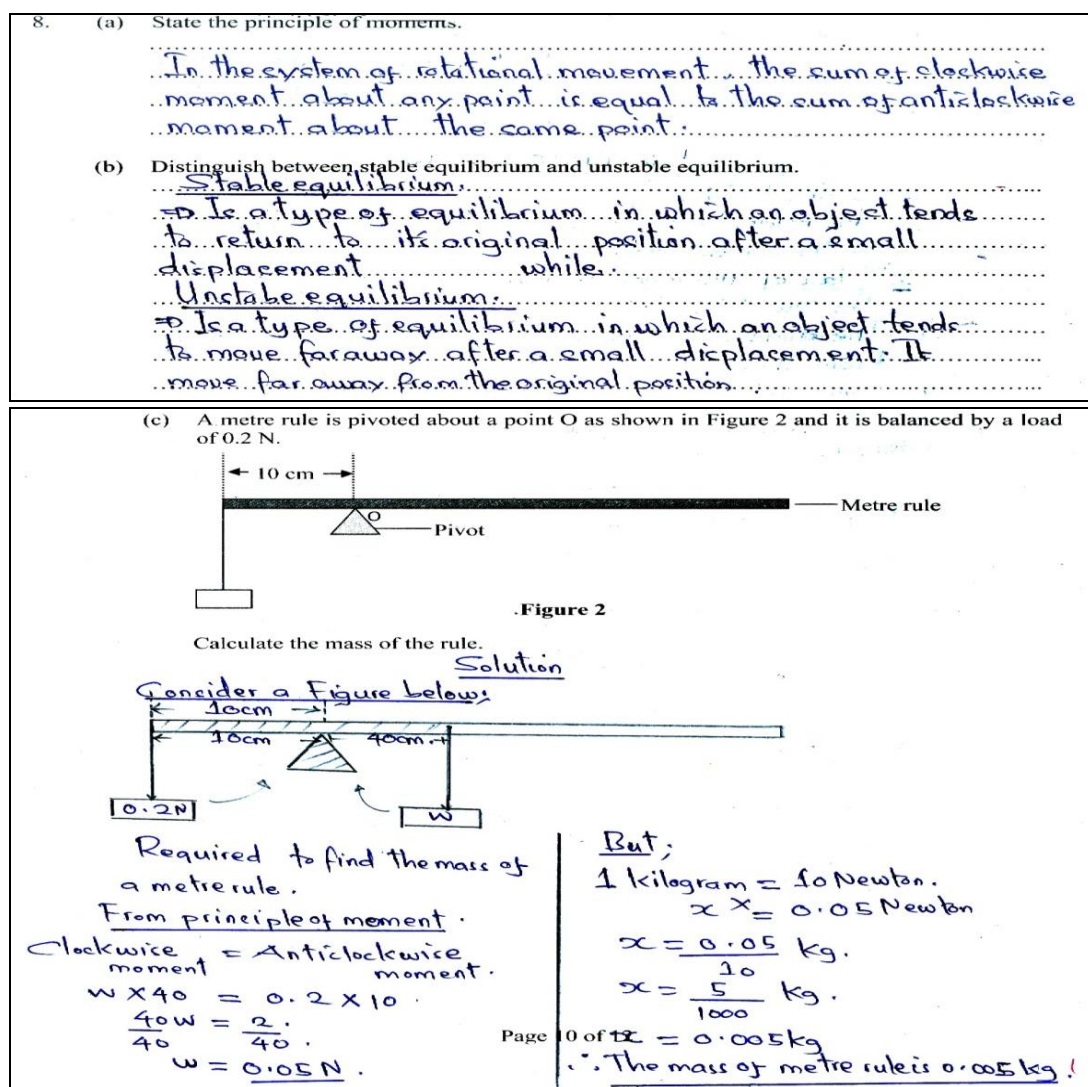 8. (a) State the principle of moments.
In the system of rotational movement, the sum of clockwise
moment about any point is equal to the sum of anticlockwise
moment about the same point.
(b) Distinguish between stable equilibrium and unstable equilibrium.
Stable equilibrium.
⇒ Is a type of equilibrium in which an object tends
to return to its original position after a small
displacement while.
Unstabe equilibrium.
⇒ Is a type of equilibrium in which an object tends
to move far away after a small displacement. It
move far away from the original position.
(c) A metre rule is pivoted about a point O as shown in Figure 2 and it is balanced by a load
of 0.2 N.
10 cm
Metre rule
O
Pivot
.Figure 2
Calculate the mass of the rule.
Solution
Consider a Figure below;
10cm
10cm 40cm
0.2N
W
Required to find the mass of
a metre rule.
From principle of moment.
Clockwise moment = Anticlockwise moment.
W X 40 = 0.2 X 10.
40W/40 = 2/40.
W = 0.05 N.
But;
1 kilogram = 10 Newton.
x = 0.05 Newton
x = 0.05/10 kg.
x = 5/1000 kg.
x = 0.005kg
∴ The mass of metre rule is 0.005 kg.
Page 10 of 12